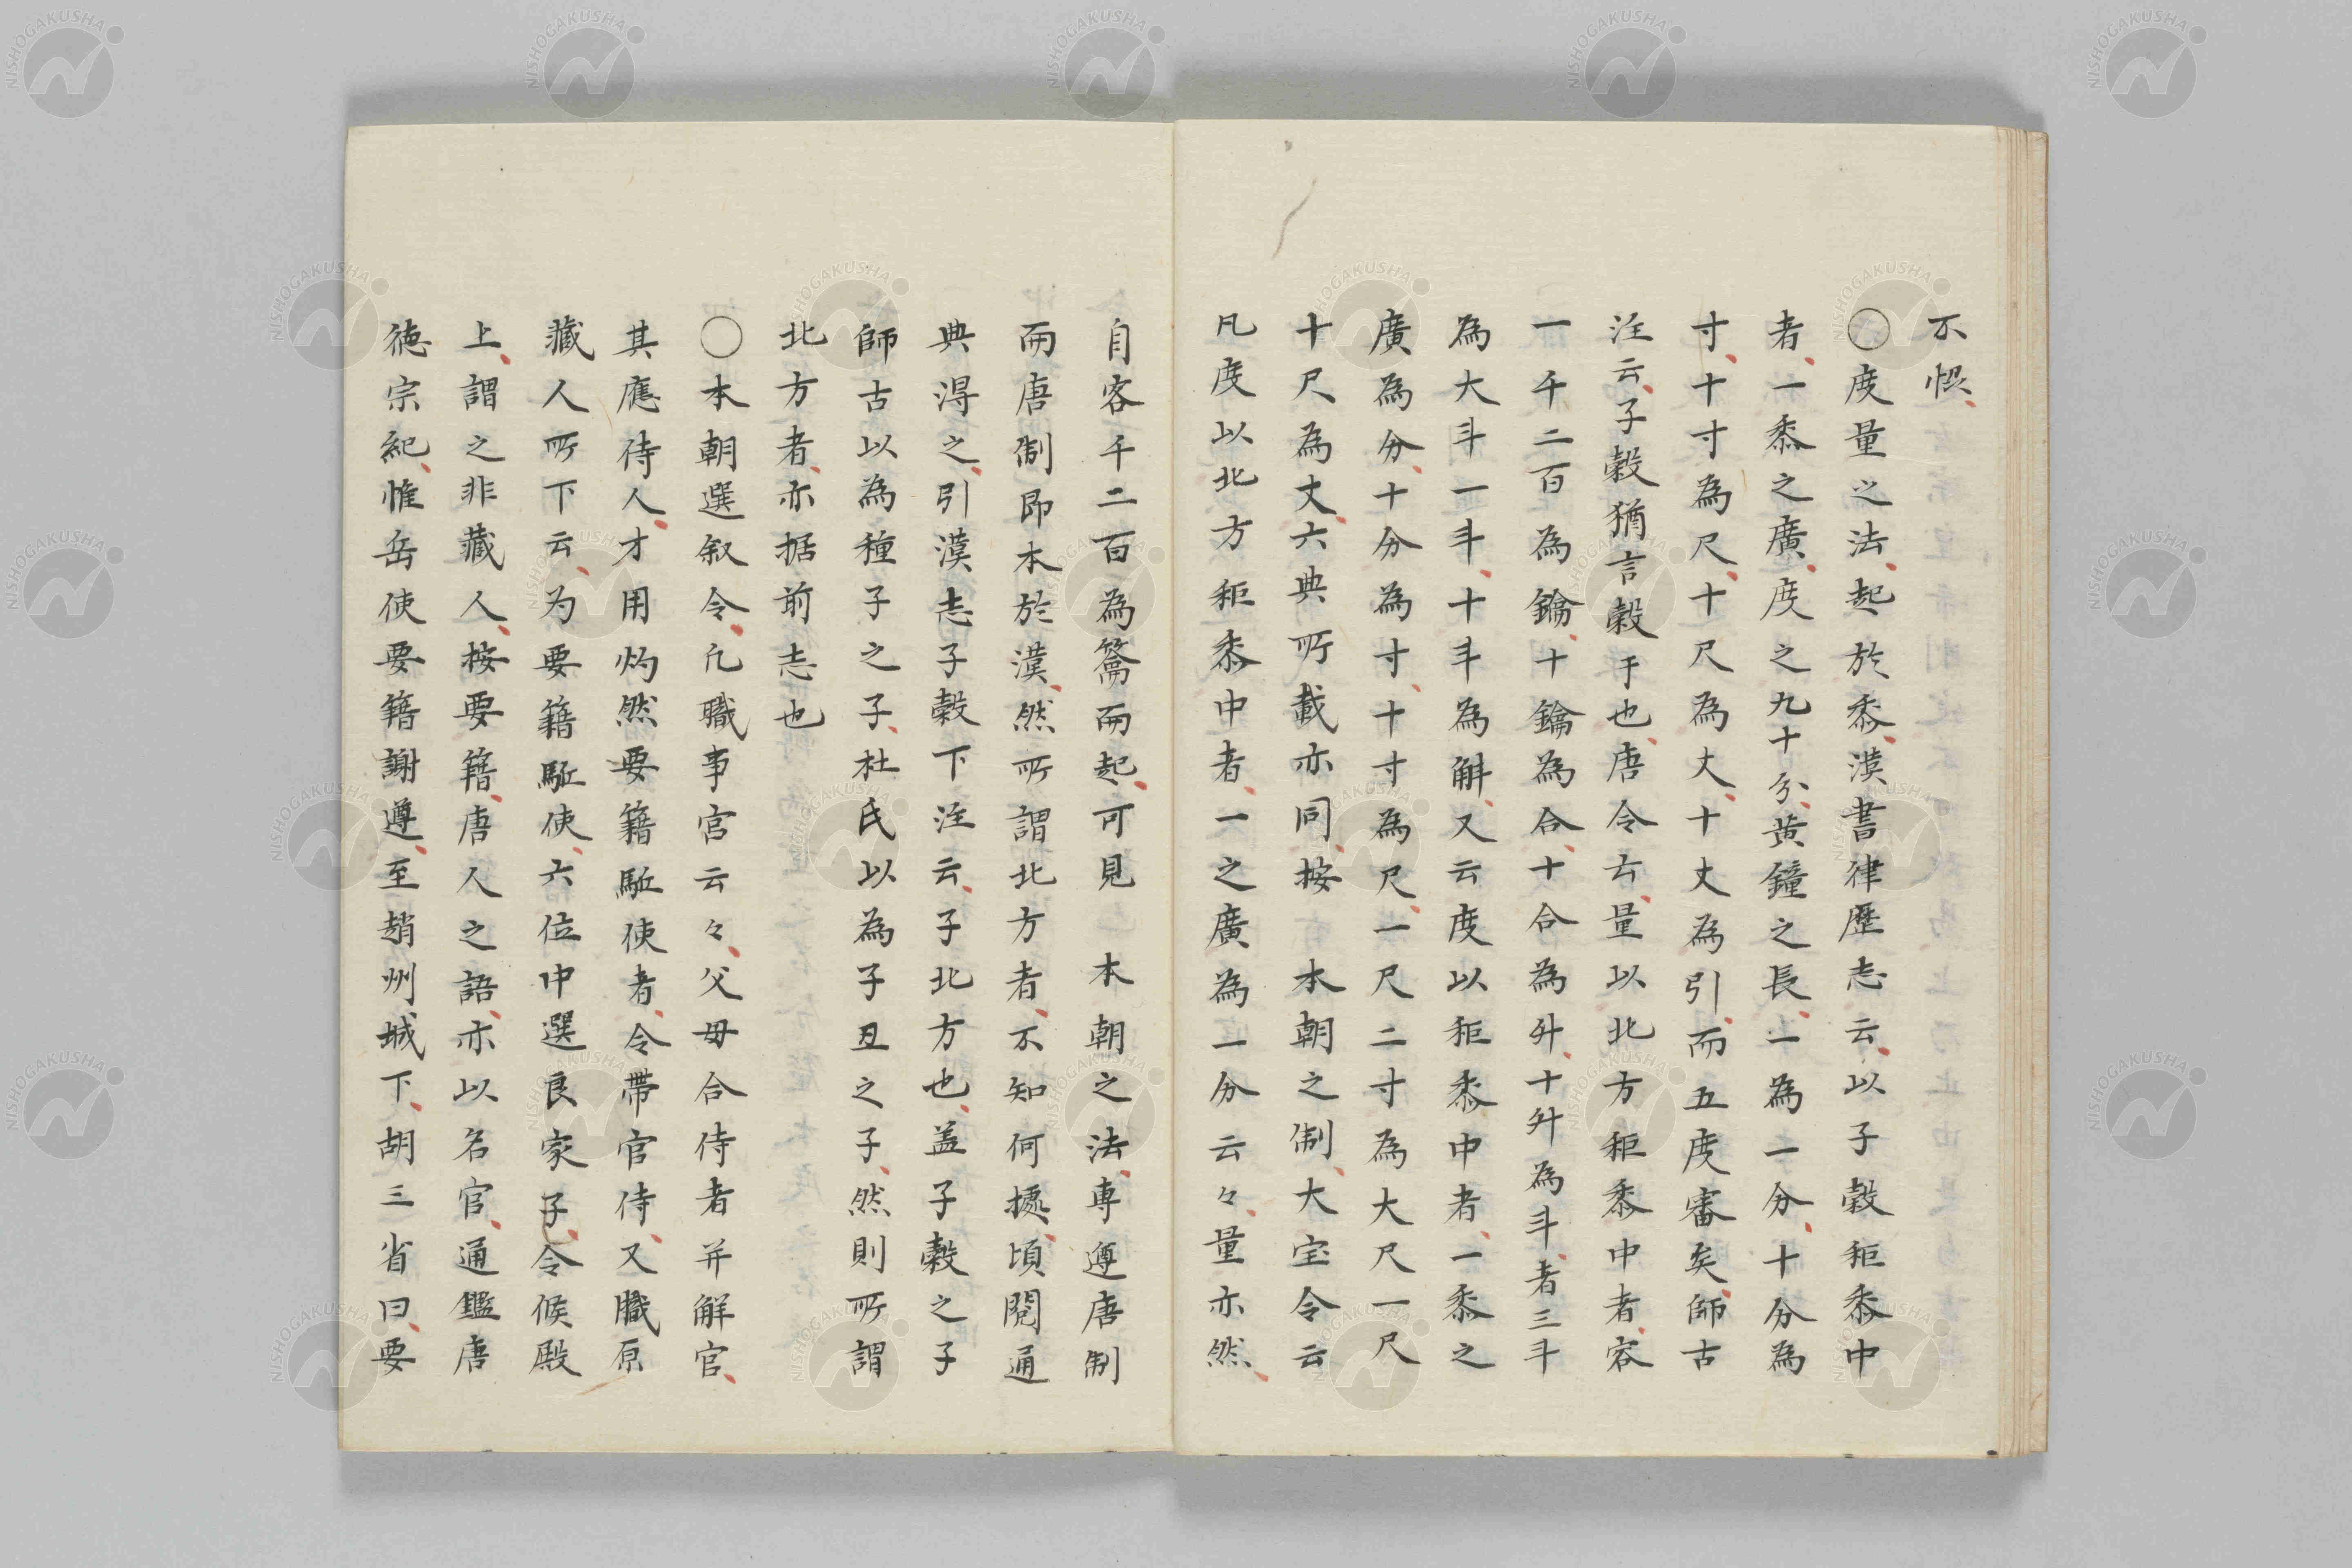 不悞
○度量之法起於黍漢書律歴志云以子穀秬黍中
者一黍之廣度之九十分黄鐘之長一為一分十分為
寸十寸為尺十尺為丈十丈為引而五度審矣師古
注云子穀猶言穀子也唐令云量以北方秬黍中者容
一千二百為鑰十鑰為合十合為升十升為斗者三斗
為大斗一斗十斗為斛又云度以秬黍中者一黍之
廣為分十分為寸十寸為尺一尺二寸為大尺一尺
十尺為丈六典所載亦同按　本朝之制大宝令云
凡度以北方秬黍中者一之廣為一分云々量亦然
自容千二百為籥而起可見　本朝之法専遵唐制
而唐制即本於漢然所謂北方者不知何據頃閲通
典得之引漢志子穀下注云子北方也盖子穀之子
師古以為種子之子杜氏以為子丑之子然則所謂
北方者亦据前志也
○本朝選叙令凢職事官云々父母合侍者并解官
其應侍人才用灼然要籍駈使者令帯官侍又職原
蔵人所下云为要籍駈使六位中選良家子令候殿
上謂之非蔵人按要籍唐人之語亦以名官通鑑唐
徳宗紀惟岳使要籍謝遵至趙州城下胡三省曰要
NISHOGAKUSHA